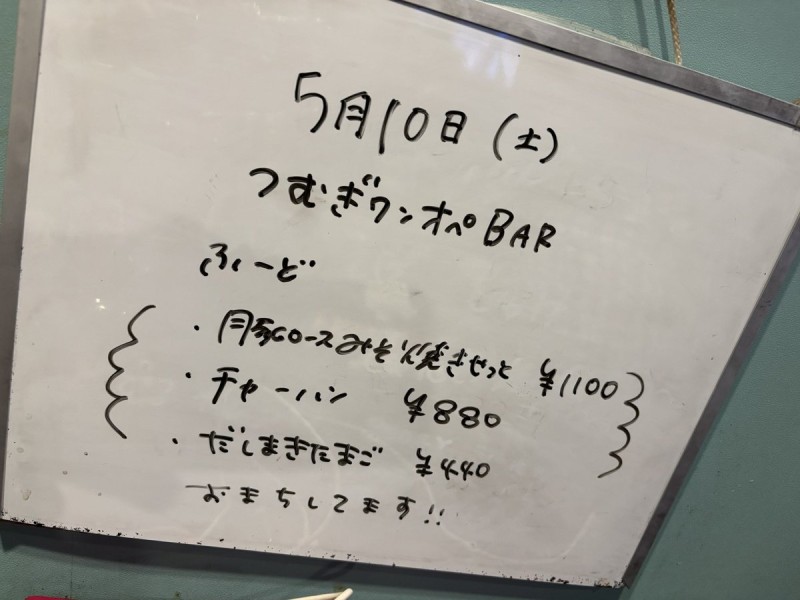 5月10日(土)
つむぎワンオペBAR
ふーど
・豚ロースみそ焼きせっと ¥1100
・チャーハン ¥880
・だしまきたまご ¥440
おまちしてます!!